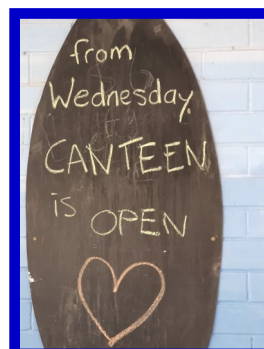 from
Wednesday
CANTEEN
is OPEN